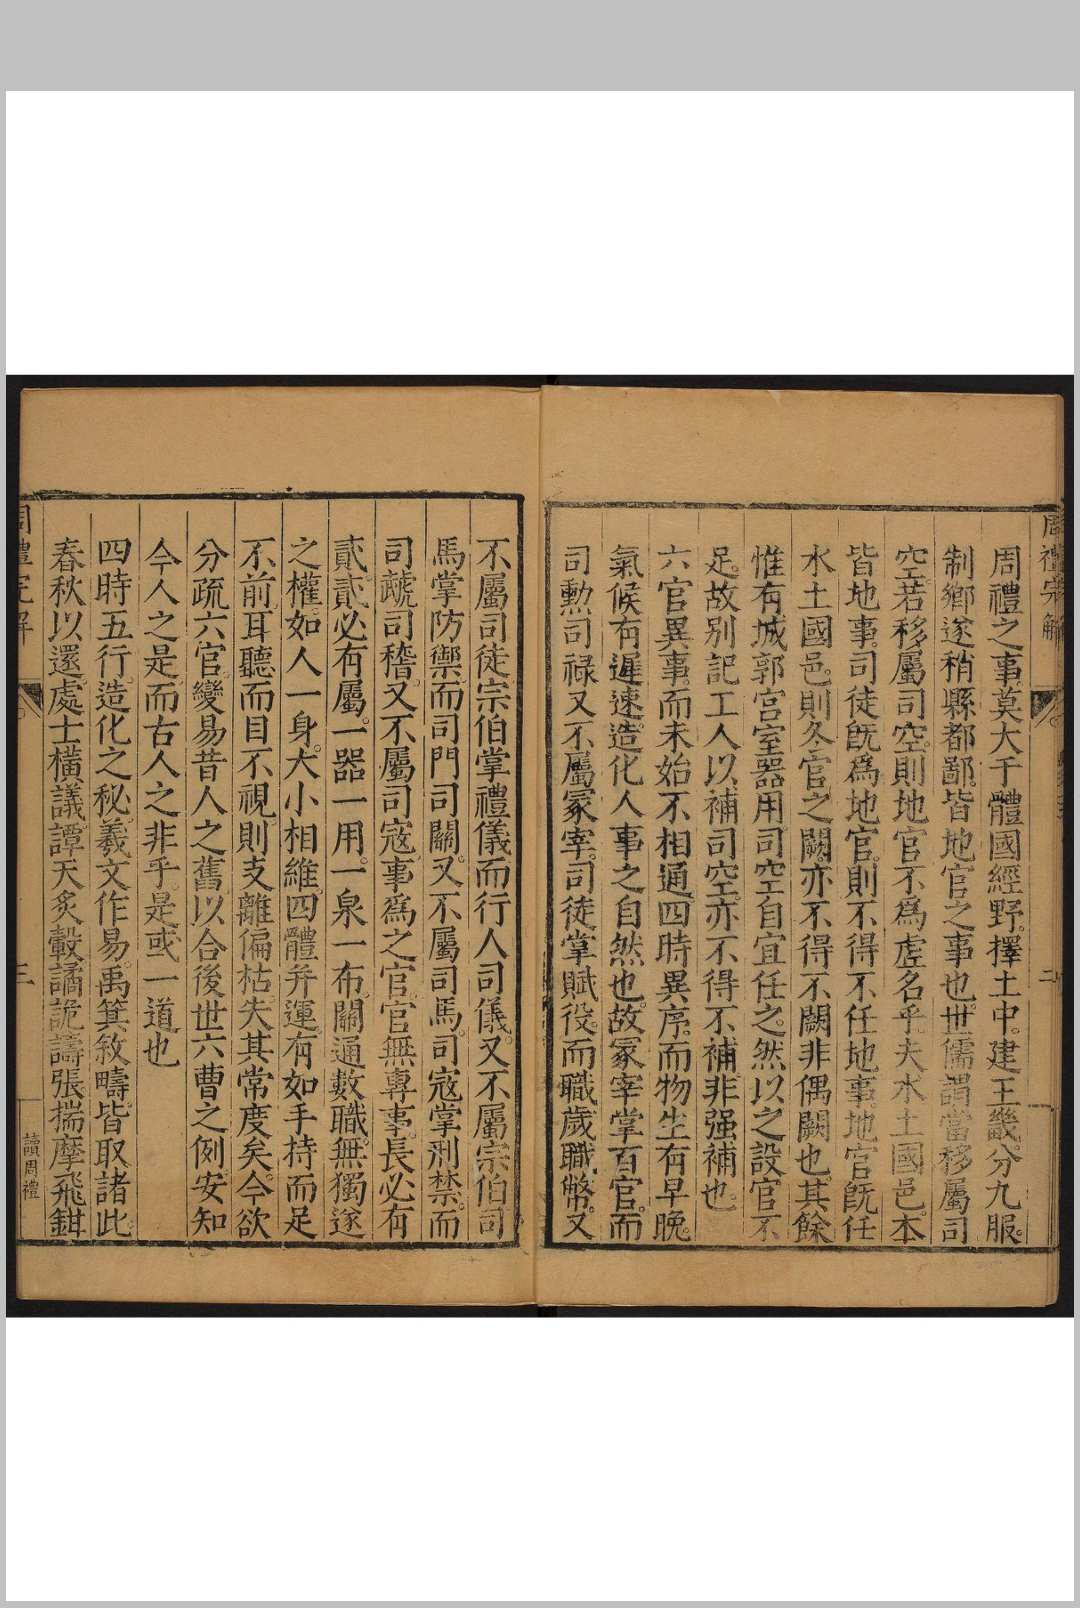 周禮完解
二
周禮之事莫大于體國經野。擇土中。建王畿。分九服。
制鄉遂稍縣都鄙。皆地官之事也。世儒謂當移屬司
空。若移屬司空。則地官不爲虗名乎。夫水土國邑。本
皆地事。司徒旣爲地官。則不得不任地事。地官旣任
水土國邑。則冬官之闕。亦不得不闕。非偶闕也。其餘
惟有城郭宮室器用。司空自宜任之。然以之設官不
足。故別記工人以補司空。亦不得不補。非强補也。
六官異事。而未始不相通。四時異序。而物生有早晚。
氣候有遲速。造化人事之自然也。故冢宰掌百官。而
司勲司祿。又不屬冢宰。司徒掌賦役。而職歲職幣。又
不屬司徒。宗伯掌禮儀。而行人司儀。又不屬宗伯。司
馬掌防禦。而司門司關。又不屬司馬。司寇掌刑禁。而
司虣司稽。又不屬司寇。事爲之官。官無專事。長必有
貳。貳必有屬。一器一用。一泉一布。關通數職。無獨遂
之權。如人一身。大小相維。四體弁運。有如手持而足
不前。耳聽而目不視。則支離偏枯。失其常度矣。今欲
分疏六官。變易昔人之舊。以合後世六曹之例。安知
今人之是。而古人之非乎。是或一道也
四時五行。造化之秘。羲文作易。禹箕敘疇。皆取諸此。
春秋以還。處士橫議。譚天炙轂。譎詭譸張。揣摩飛鉗
周禮完解
三
讀周禮